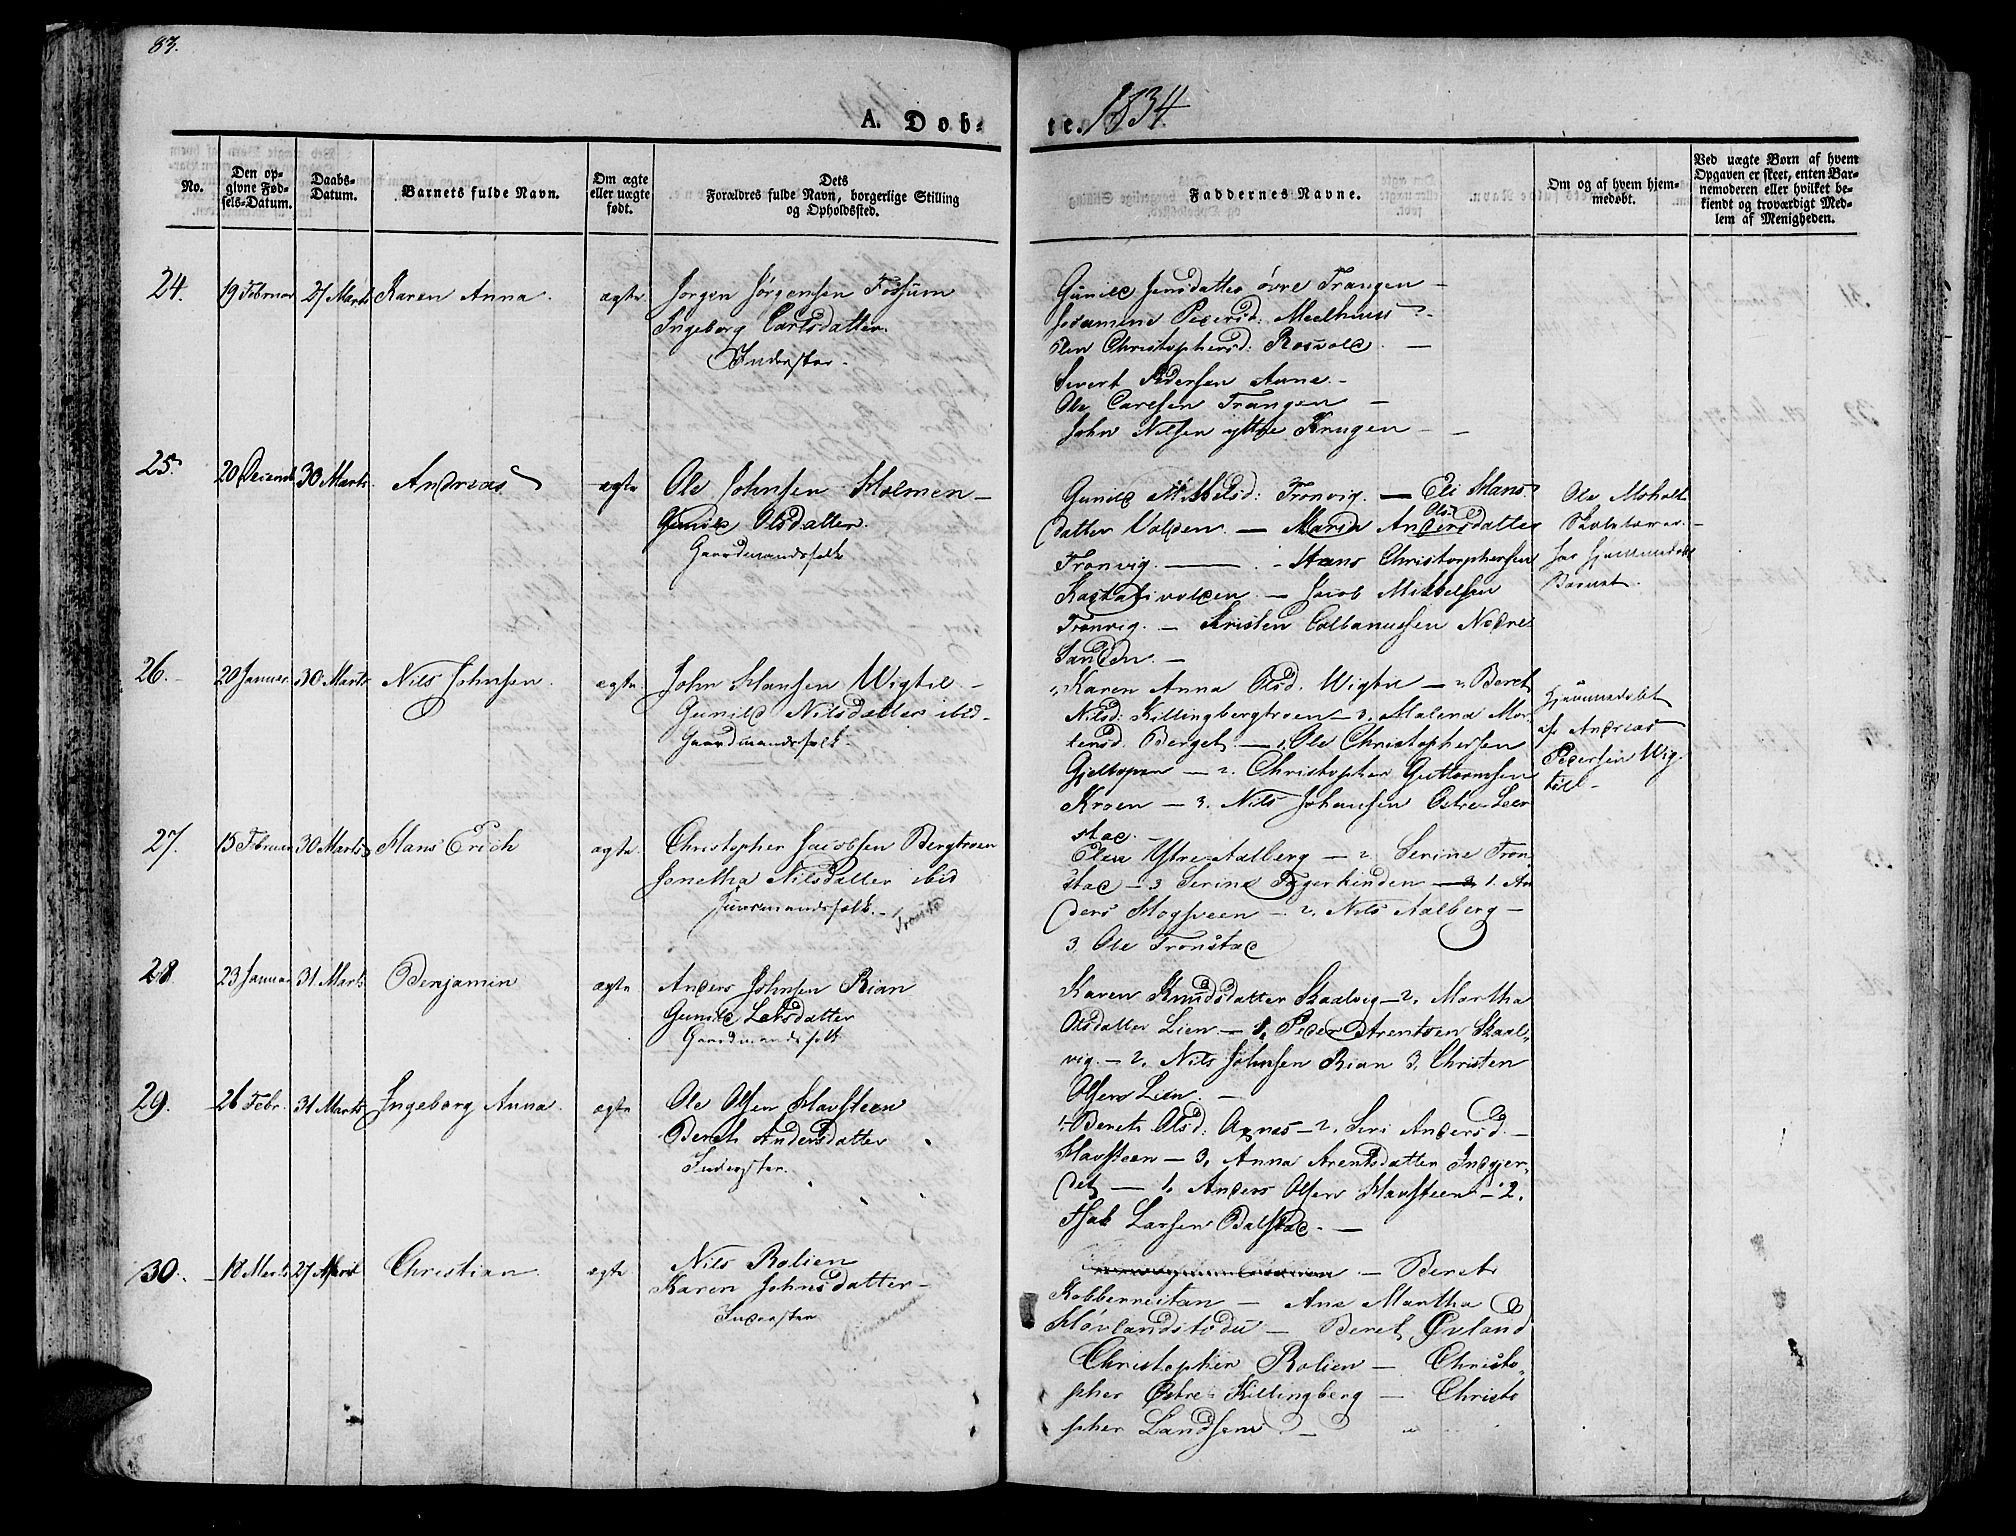 83.
A. Døb-
te. 1834
No.
Den op-
givne Fød-
sels-Datum.
Daabs-
Datum.
Barnets fulde Navn.
Om ægte
eller uægte
født.
Dets
Forældres fulde Navn, borgerlige Stilling
og Opholdssted.
Faddernes Navne.
Om og af hvem hjem-
medøbt.
Ved uægte Børn af hvem
Opgaven er skeet, enten Bar-
nemoderen eller hvilket be-
kiendt og troværdigt Med-
lem af Menigheden.
24. 19 Februar 27 Marts Karen Anna. ægte. Jørgen Jørgensen Fossum
Ingeborg Carlsdatter.
Inderster.
Gunild Jensdatter øvre Trangen
Pedersd: Meelhuus
Christophersd: Rosvold
Sivert Pedersen Aune
Ole Carlsen Trangen
John Nilsen yttre Krogen
25. 20 Decemb 30 Marts. Andreas ægte Ole Johnsen Holmen
Gunild Olsdatter.
Gaardmandsfolk
Gunild Mikkelsd: Tronvig. — Eli Hans
datter Volden. — Maria Andersdatter
Tronvig. — Hans Christophersen
Jacob Mikkelsen
Tronvig. — Kristen Albanussen Nedre
Sanden. —
Ole Moholt
Skolelærer
har hjemmedøbt
Barnet.
26. 20 Januar. 30 Marts Nils Johnsen. ægte. John Hansen Wigtil
Gunild Nilsdatter ibid.
Gaardmandsfolk.
1. Karen Anna Olsd. Wigtil — 2. Beret
Nilsd: Killingbergtroen — 3. Malena Mor-
tensd. Berget — 1. Ole Christophersen
Gjeltopen — 2. Christopher Guttormsen
Kroen — 3. Nils Johansen Østre Leer
stad. —
Hjemmedøbt
af Andreas
Pedersen Wig-
till
27. 15 Februar 30 Marts Hans Erich ægte. Christopher Jacobsen Bergtroen
Jonetha Nilsdatter ibid
Huusmandsfolk. Tronstad
Elen Ytre Aalberg — 2. Serine Tron-
stad — 3 Serine Fagerhinden — 1. An
ders Hogsveen — 2. Nils Aalberg —
3. Ole Tronstad
28 23 Januar 31 Marts Benjamin ægte Anders Johnsen Rian
Gunild Larsdatter
Gaardmandsfolk
Karen Knudsdatter Skaalvig — 2. Martha
Olsdatter Lien — 1. Peder Arentsen Skaal-
vig. — 2. Nils Johnsen Rian 3. Christen
Olsen Lien. —
29. 26 Febr. 31 Marts Ingeborg Anna. ægte Ole Olsen Havsteen
Beret Andersdatter
Inderster.
1. Beret Olsd. Agnes — 2. Siri Andersd. —
Havsteen — 3. Anna Arentsdatter Indgjer-
det — 1. Anders Olsen Havsteen — 2.
Isak Larsen Balstad. —
30. 18 Marts 27 April Christian. ægte Nils Rolien
Karen Johnsdatter
Inderster
— Beret
Kobberneitan — Ane Martha
Hovlandstødu — Beret Øvland
Christopher Rolien — Christo-
pher Østre Killingberg — Christo
pher Landsem —